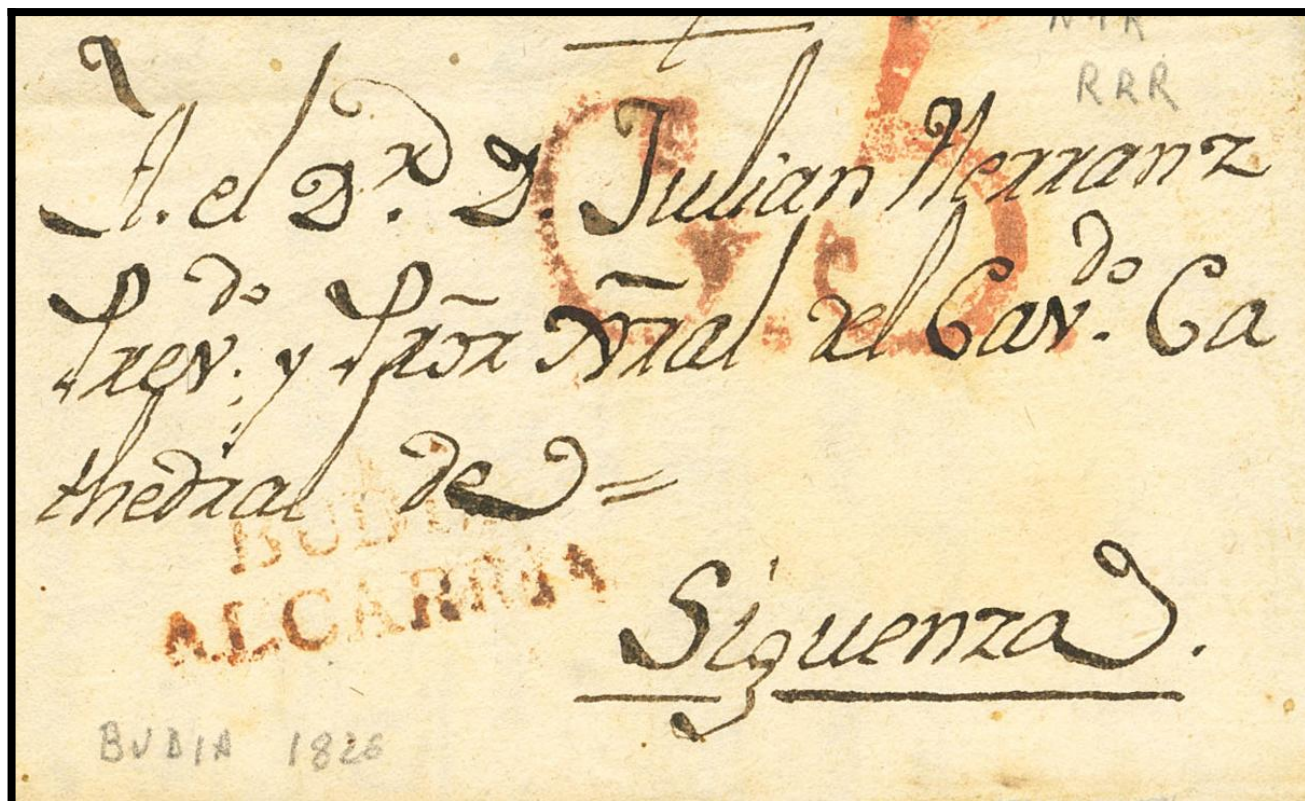 RRR
A. el D.r D. Julian Herranz
Prev.do y Pror Nral del Cav.do Ca
thedral de =
BUDIA
ALCARRIA
Siguenza.
BUDIA 1826